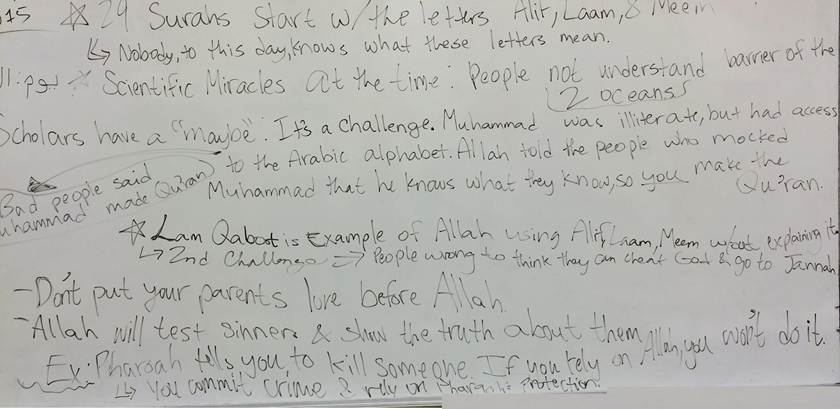 15 ☆ 29 Surahs Start w/the letters Alif, Laam, & Meem
↳ Nobody, to this day, knows what these letters mean.
Scientific Miracles at the time: People not understand barrier of the
2 oceans
Scholars have a "maybe": It's a challenge. Muhammad was illiterate, but had access
to the Arabic alphabet. Allah told the people who mocked
Bad people said
Muhammad made Qu'ran
Muhammad that he knows what they know, so you make the
Qu'ran.
☆ Lam Qaboot is Example of Allah using Alif, Laam, Meem w/out explaining it
↳ 2nd Challenge ⇒ People wrong to think they can cheat God & go to Jannah
- Don't put your parents love before Allah
- Allah will test sinners & show the truth about them
Ex: Pharoah tells you to kill someone. If you rely on Allah, you won't do it.
↳ You commit crime & rely on Pharoah's Protection.